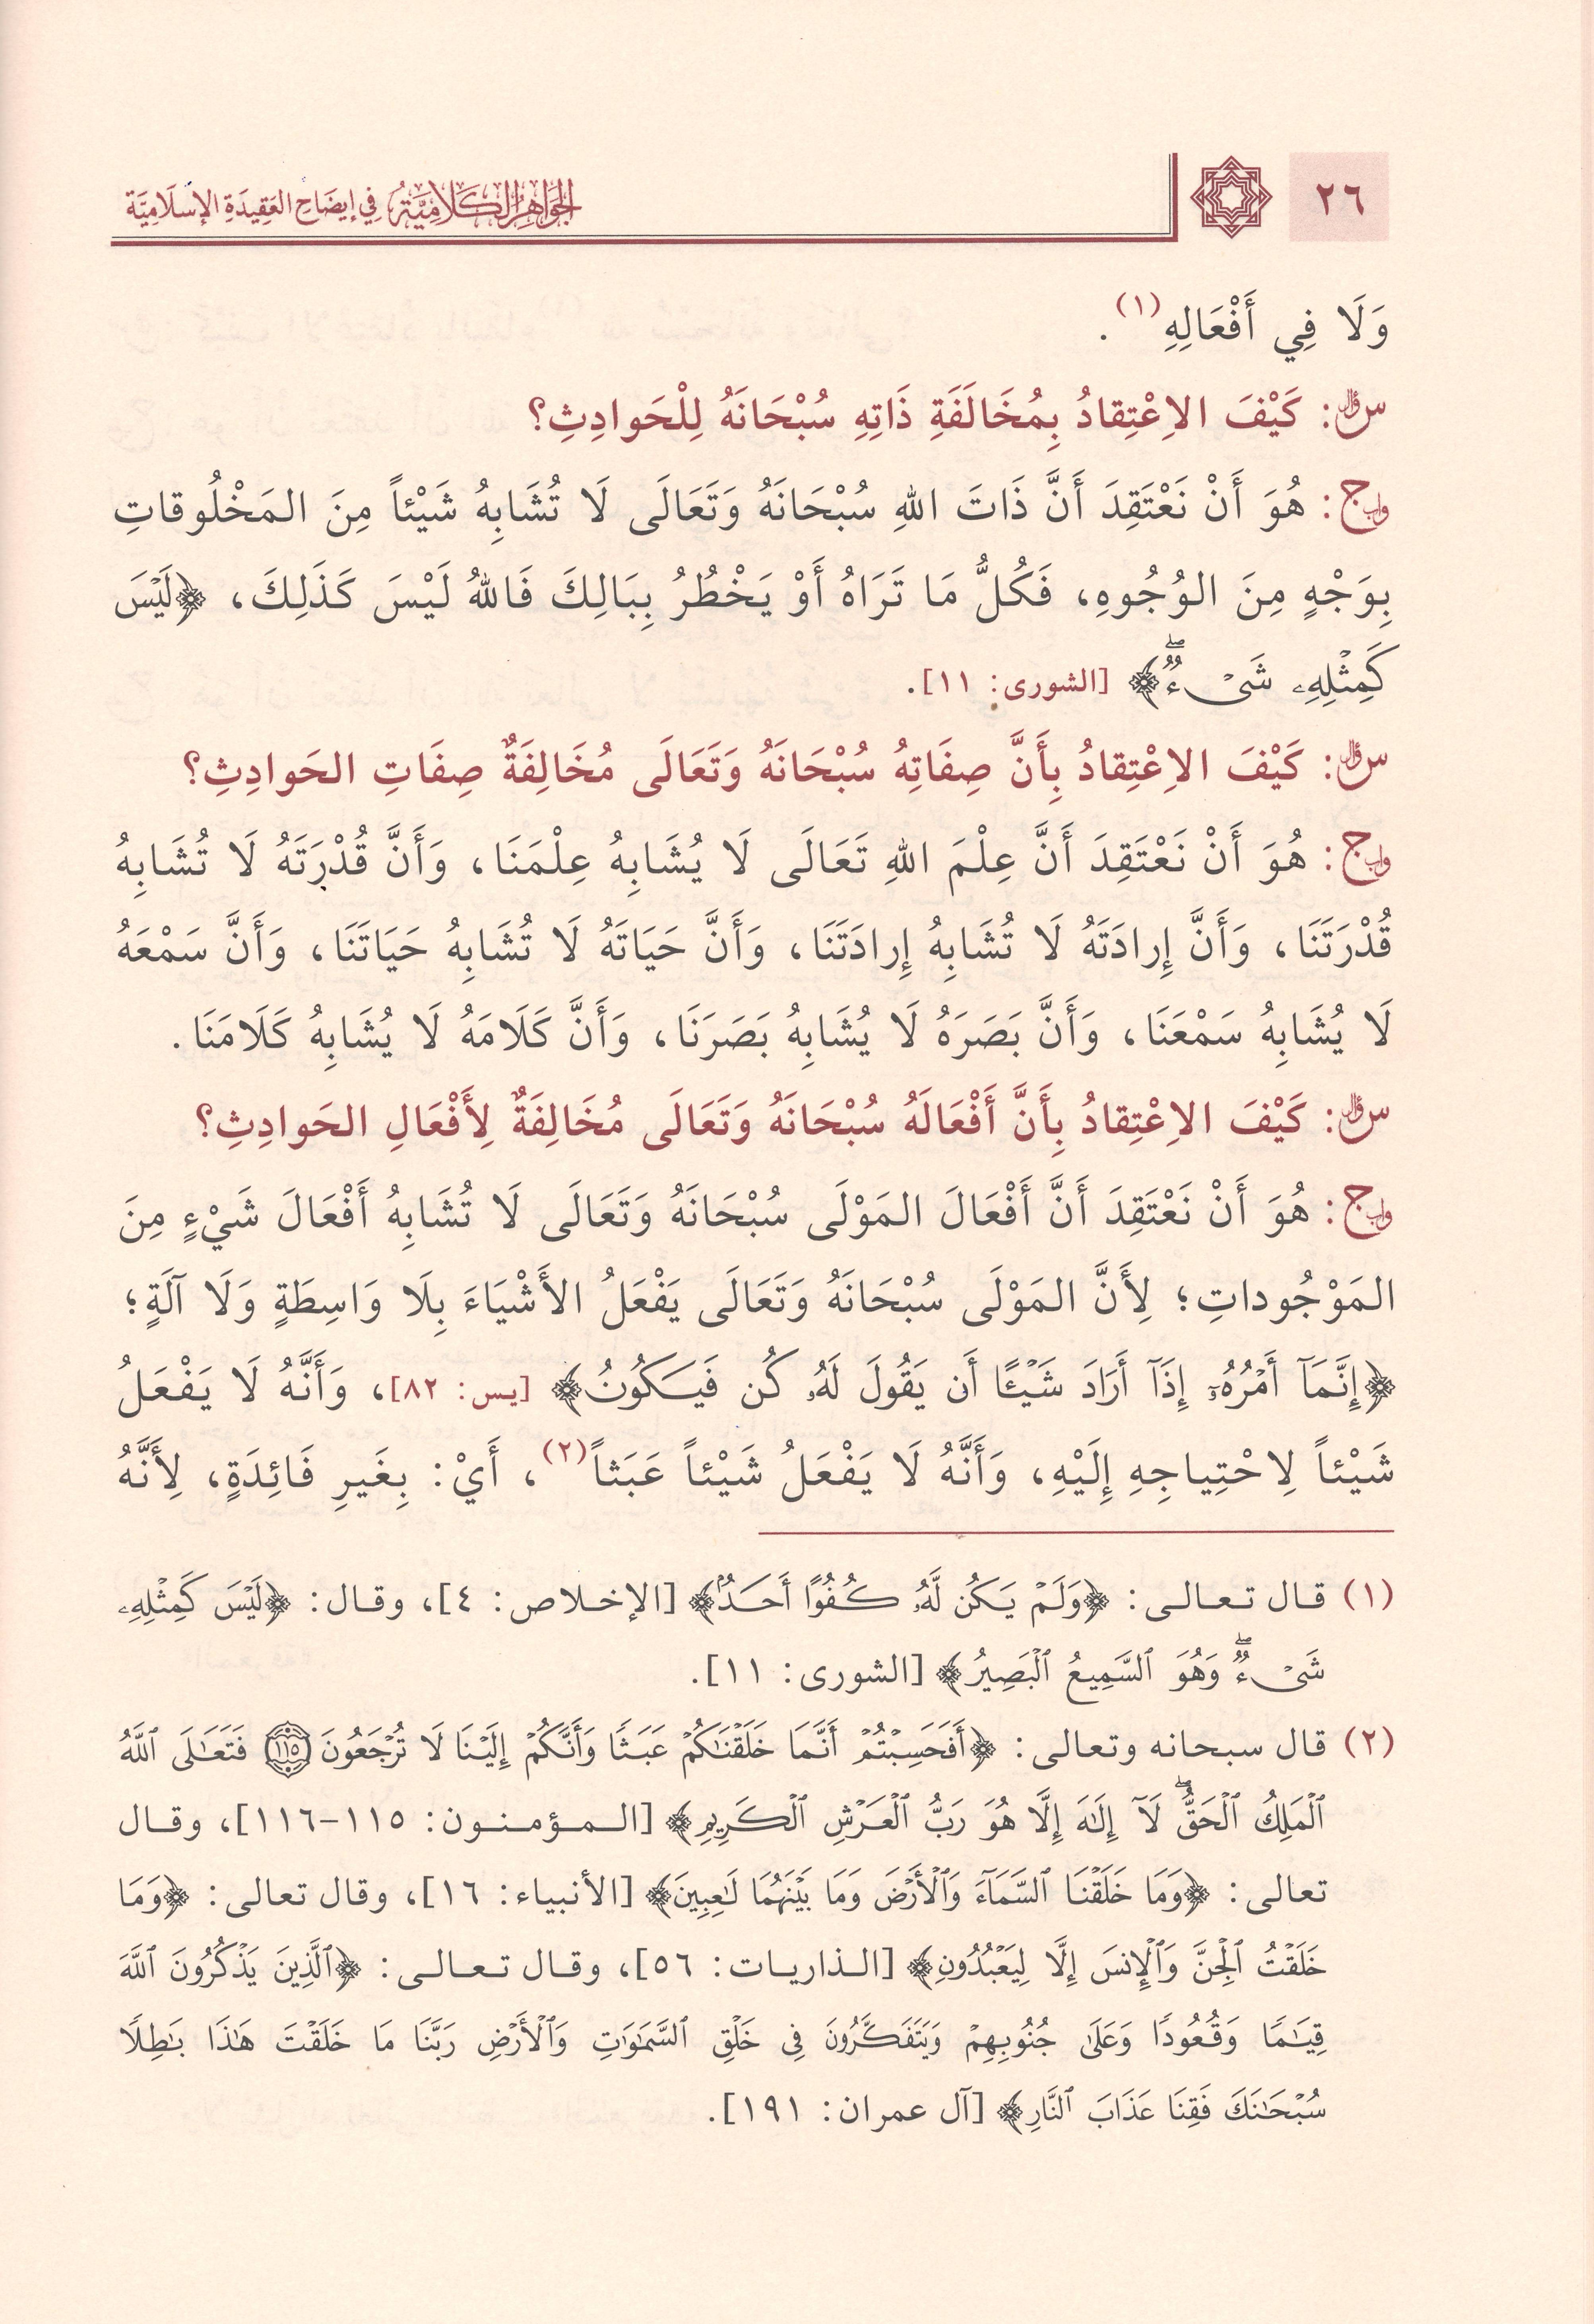 ٢٦
الجَوَاهِرُ الكَلَامِيَّةُ فِي إِيضَاحِ العَقِيدَةِ الإِسْلَامِيَّة
وَلَا فِي أَفْعَالِهِ(١).
سؤال: كَيْفَ الاِعْتِقادُ بِمُخَالَفَةِ ذَاتِهِ سُبْحَانَهُ لِلْحَوادِثِ؟
جواب: هُوَ أَنْ نَعْتَقِدَ أَنَّ ذَاتَ اللهِ سُبْحَانَهُ وَتَعَالَى لَا تُشَابِهُ شَيْئاً مِنَ المَخْلُوقاتِ
بِوَجْهٍ مِنَ الوُجُوهِ، فَكُلُّ مَا تَرَاهُ أَوْ يَخْطُرُ بِبَالِكَ فَاللهُ لَيْسَ كَذَلِكَ، ﴿لَيۡسَ
كَمِثۡلِهِۦ شَيۡءٞۖ﴾ [الشورى: ١١].
سؤال: كَيْفَ الاِعْتِقادُ بِأَنَّ صِفَاتِهُ سُبْحَانَهُ وَتَعَالَى مُخَالِفَةٌ صِفَاتِ الحَوادِثِ؟
جواب: هُوَ أَنْ نَعْتَقِدَ أَنَّ عِلْمَ اللهِ تَعَالَى لَا يُشَابِهُ عِلْمَنَا، وَأَنَّ قُدْرَتَهُ لَا تُشَابِهُ
قُدْرَتَنَا، وَأَنَّ إِرادَتَهُ لَا تُشَابِهُ إِرادَتَنَا، وَأَنَّ حَيَاتَهُ لَا تُشَابِهُ حَيَاتَنَا، وَأَنَّ سَمْعَهُ
لَا يُشَابِهُ سَمْعَنَا، وَأَنَّ بَصَرَهُ لَا يُشَابِهُ بَصَرَنَا، وَأَنَّ كَلَامَهُ لَا يُشَابِهُ كَلَامَنَا.
سؤال: كَيْفَ الاِعْتِقادُ بِأَنَّ أَفْعَالَهُ سُبْحَانَهُ وَتَعَالَى مُخَالِفَةٌ لِأَفْعَالِ الحَوادِثِ؟
جواب: هُوَ أَنْ نَعْتَقِدَ أَنَّ أَفْعَالَ المَوْلَى سُبْحَانَهُ وَتَعَالَى لَا تُشَابِهُ أَفْعَالَ شَيْءٍ مِنَ
المَوْجُوداتِ؛ لِأَنَّ المَوْلَى سُبْحَانَهُ وَتَعَالَى يَفْعَلُ الأَشْيَاءَ بِلَا وَاسِطَةٍ وَلَا آلَةٍ؛
﴿إِنَّمَآ أَمۡرُهُۥٓ إِذَآ أَرَادَ شَيۡـًٔا أَن يَقُولَ لَهُۥ كُن فَيَكُونُ﴾ [يس: ٨٢]، وَأَنَّهُ لَا يَفْعَلُ
شَيْئاً لِاحْتِياجِهِ إِلَيْهِ، وَأَنَّهُ لَا يَفْعَلُ شَيْئاً عَبَثاً(٢)، أَيْ: بِغَيرِ فَائِدَةٍ، لِأَنَّهُ
(١) قال تعالى: ﴿وَلَمۡ يَكُن لَّهُۥ كُفُوًا أَحَدُۢ﴾ [الإخلاص: ٤]، وقال: ﴿لَيۡسَ كَمِثۡلِهِۦ
شَيۡءٞۖ وَهُوَ ٱلسَّمِيعُ ٱلۡبَصِيرُ﴾ [الشورى: ١١].
(٢) قال سبحانه وتعالى: ﴿أَفَحَسِبۡتُمۡ أَنَّمَا خَلَقۡنَٰكُمۡ عَبَثٗا وَأَنَّكُمۡ إِلَيۡنَا لَا تُرۡجَعُونَ ١١٥ فَتَعَٰلَى ٱللَّهُ
ٱلۡمَلِكُ ٱلۡحَقُّۖ لَآ إِلَٰهَ إِلَّا هُوَ رَبُّ ٱلۡعَرۡشِ ٱلۡكَرِيمِ﴾ [المؤمنون: ١١٥-١١٦]، وقال
تعالى: ﴿وَمَا خَلَقۡنَا ٱلسَّمَآءَ وَٱلۡأَرۡضَ وَمَا بَيۡنَهُمَا لَٰعِبِينَ﴾ [الأنبياء: ١٦]، وقال تعالى: ﴿وَمَا
خَلَقۡتُ ٱلۡجِنَّ وَٱلۡإِنسَ إِلَّا لِيَعۡبُدُونِ﴾ [الذاريات: ٥٦]، وقال تعالى: ﴿ٱلَّذِينَ يَذۡكُرُونَ ٱللَّهَ
قِيَٰمٗا وَقُعُودٗا وَعَلَىٰ جُنُوبِهِمۡ وَيَتَفَكَّرُونَ فِي خَلۡقِ ٱلسَّمَٰوَٰتِ وَٱلۡأَرۡضِ رَبَّنَا مَا خَلَقۡتَ هَٰذَا بَٰطِلٗا
سُبۡحَٰنَكَ فَقِنَا عَذَابَ ٱلنَّارِ﴾ [آل عمران: ١٩١].